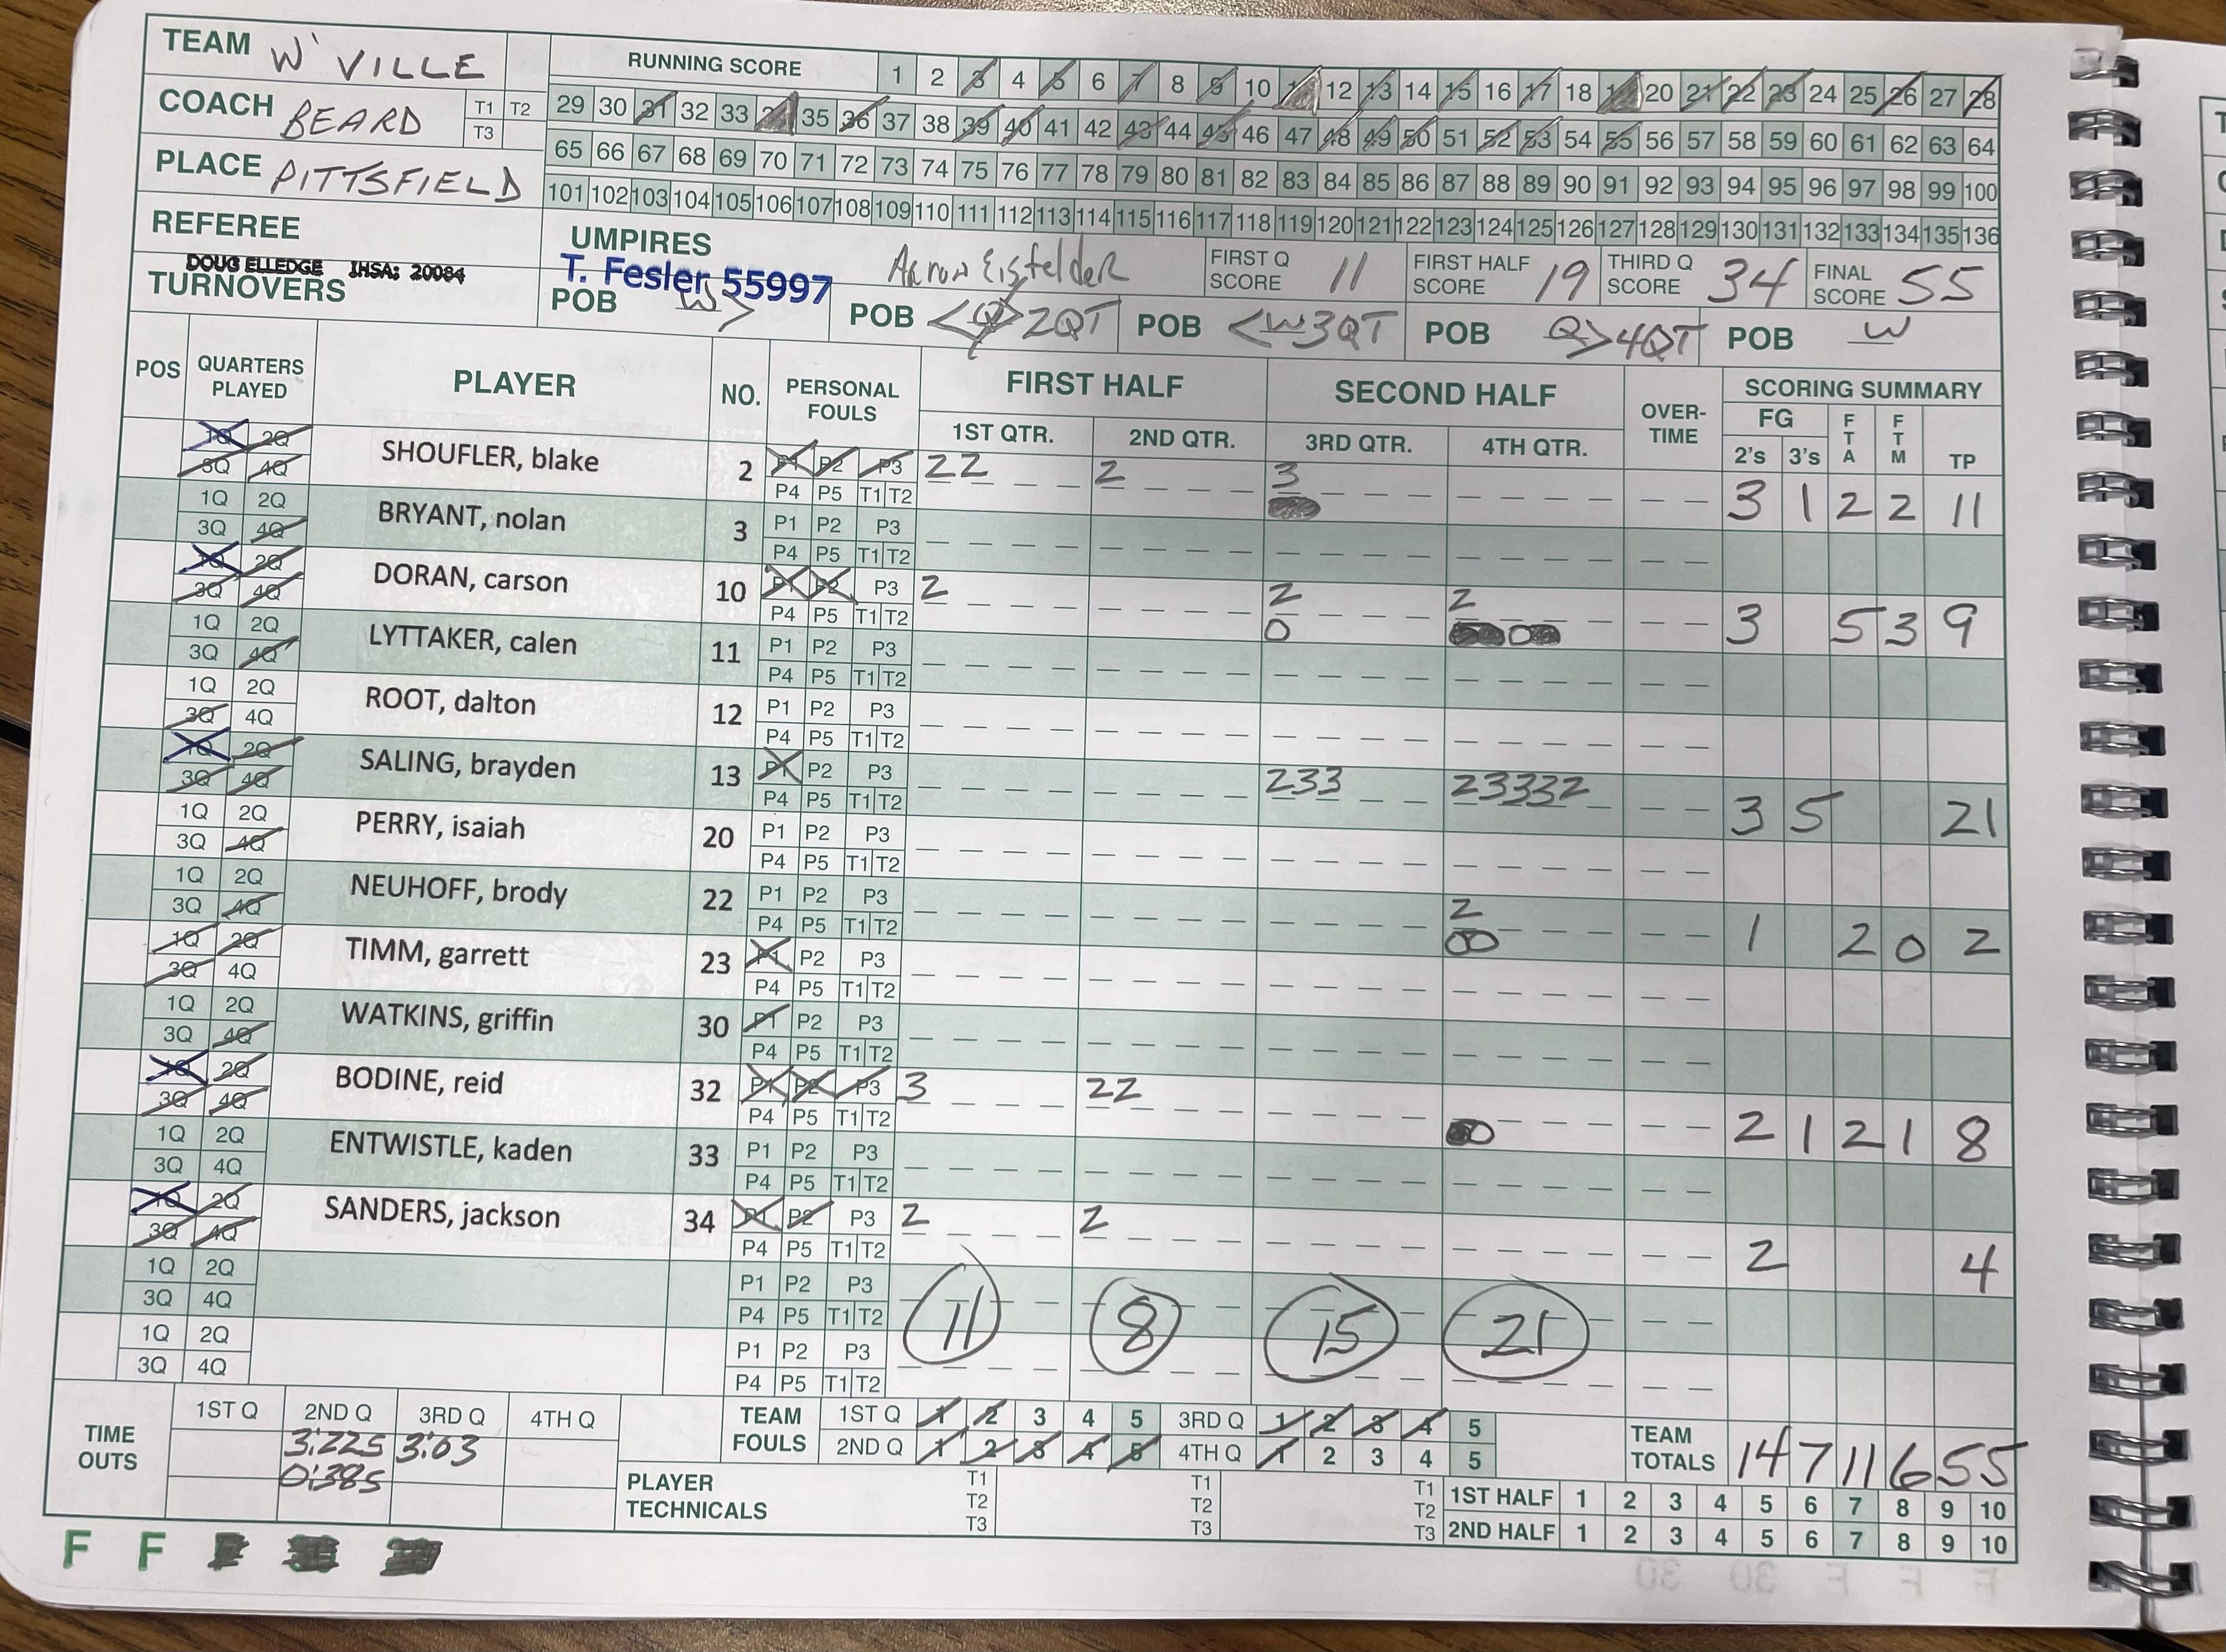 TEAM W'VILLE
RUNNING SCORE 1 2 3 4 5 6 7 8 9 10 11 12 13 14 15 16 17 18 19 20 21 22 23 24 25 26 27 28
COACH BEARD T1 T2 T3
29 30 31 32 33 34 35 36 37 38 39 40 41 42 43 44 45 46 47 48 49 50 51 52 53 54 55 56 57 58 59 60 61 62 63 64
PLACE PITTSFIELD
65 66 67 68 69 70 71 72 73 74 75 76 77 78 79 80 81 82 83 84 85 86 87 88 89 90 91 92 93 94 95 96 97 98 99 100
101 102 103 104 105 106 107 108 109 110 111 112 113 114 115 116 117 118 119 120 121 122 123 124 125 126 127 128 129 130 131 132 133 134 135 136
REFEREE
DOUG ELLEDGE IHSA: 20084
UMPIRES
T. Fesler 55997
Aaron Eisfelder
FIRST Q SCORE 11
FIRST HALF SCORE 19
THIRD Q SCORE 34
FINAL SCORE 55
TURNOVERS
POB W >
POB < Q > 2QT
POB < W 3QT
POB Q > 4QT
POB W
POS QUARTERS PLAYED PLAYER NO. PERSONAL FOULS FIRST HALF SECOND HALF OVER-TIME SCORING SUMMARY
1ST QTR. 2ND QTR. 3RD QTR. 4TH QTR. FG 2's 3's FTA FTM TP
1Q 2Q 3Q 4Q SHOUFLER, blake 2 P1 P2 P3 P4 P5 T1 T2 22 2 3 3 1 2 2 11
1Q 2Q 3Q 4Q BRYANT, nolan 3 P1 P2 P3 P4 P5 T1 T2
1Q 2Q 3Q 4Q DORAN, carson 10 P1 P2 P3 P4 P5 T1 T2 2 2 0 2 3 5 3 9
1Q 2Q 3Q 4Q LYTTAKER, calen 11 P1 P2 P3 P4 P5 T1 T2
1Q 2Q 3Q 4Q ROOT, dalton 12 P1 P2 P3 P4 P5 T1 T2
1Q 2Q 3Q 4Q SALING, brayden 13 P1 P2 P3 P4 P5 T1 T2 233 23332 3 5 21
1Q 2Q 3Q 4Q PERRY, isaiah 20 P1 P2 P3 P4 P5 T1 T2
1Q 2Q 3Q 4Q NEUHOFF, brody 22 P1 P2 P3 P4 P5 T1 T2 2 00 1 2 0 2
1Q 2Q 3Q 4Q TIMM, garrett 23 P1 P2 P3 P4 P5 T1 T2
1Q 2Q 3Q 4Q WATKINS, griffin 30 P1 P2 P3 P4 P5 T1 T2
1Q 2Q 3Q 4Q BODINE, reid 32 P1 P2 P3 P4 P5 T1 T2 3 22 0 2 1 2 1 8
1Q 2Q 3Q 4Q ENTWISTLE, kaden 33 P1 P2 P3 P4 P5 T1 T2
1Q 2Q 3Q 4Q SANDERS, jackson 34 P1 P2 P3 P4 P5 T1 T2 2 2 2 4
1Q 2Q 3Q 4Q P1 P2 P3 P4 P5 T1 T2 11 8 15 21
1Q 2Q 3Q 4Q P1 P2 P3 P4 P5 T1 T2
TIME OUTS 1ST Q 2ND Q 3RD Q 4TH Q
3:225 3:03
0:385
TEAM FOULS 1ST Q 1 2 3 4 5 3RD Q 1 2 3 4 5
2ND Q 1 2 3 4 5 4TH Q 1 2 3 4 5
TEAM TOTALS 14 7 11 6 55
PLAYER TECHNICALS T1 T2 T3 T1 T2 T3 T1 T2 T3
1ST HALF 1 2 3 4 5 6 7 8 9 10
2ND HALF 1 2 3 4 5 6 7 8 9 10
F F